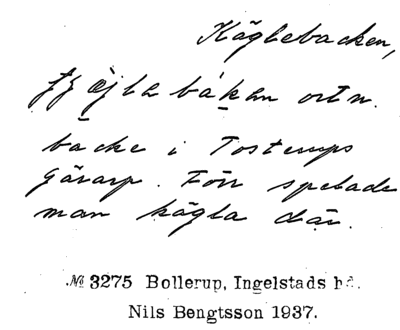 Käglebacken,
backe i Tosterups
Gärarp. Förr spelade
man kägla där.
№ 3275 Bollerup, Ingelstads hd.
Nils Bengtsson 1937.